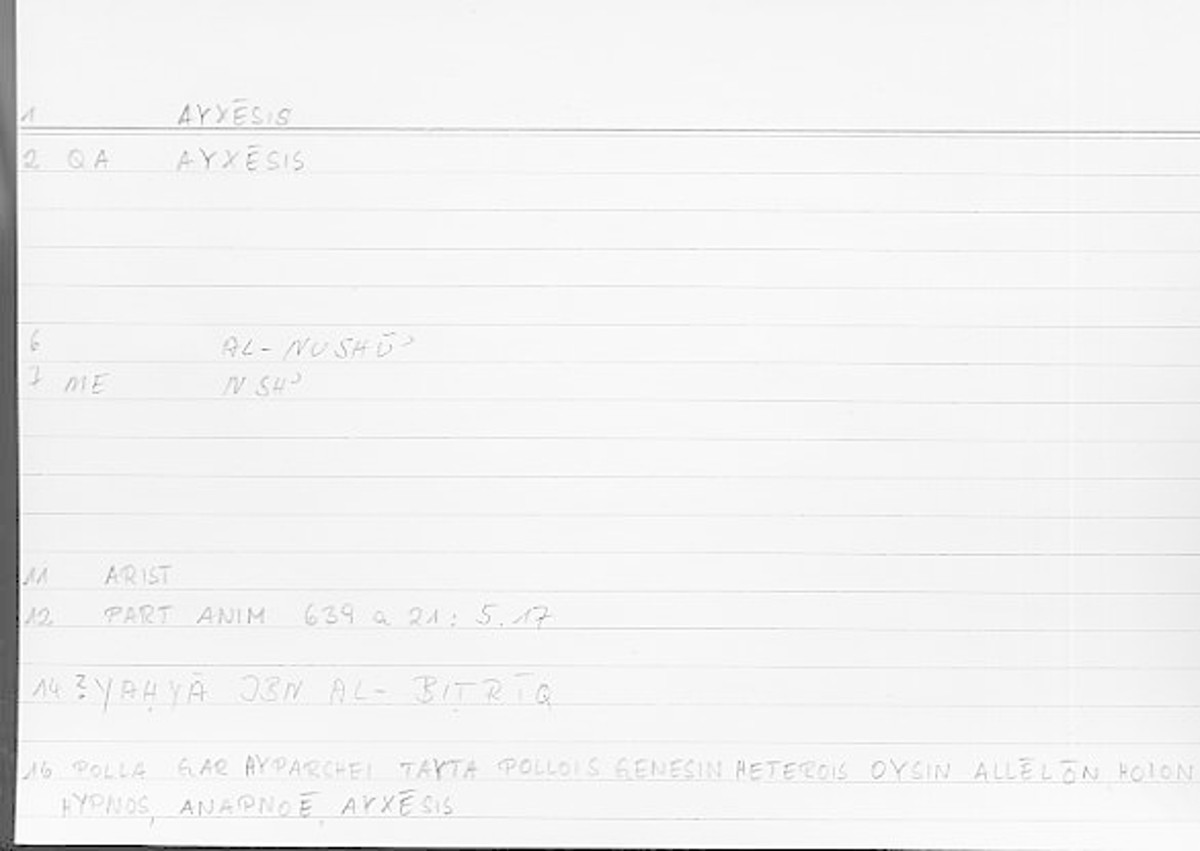 1 AYXĒSIS
2 QA AYXĒSIS
6 AL-NUSHŪʾ
7 ME NSHʾ
11 ARIST
12 PART ANIM 639 a 21: 5.17
14 ?YAḤYĀ IBN AL-BIṬRĪQ
16 POLLA GAR HYPARCHEI TAYTA POLLOIS GENESIN HETEROIS OYSIN ALLĒLŌN, HOION
HYPNOS, ANAPNOĒ, AYXĒSIS